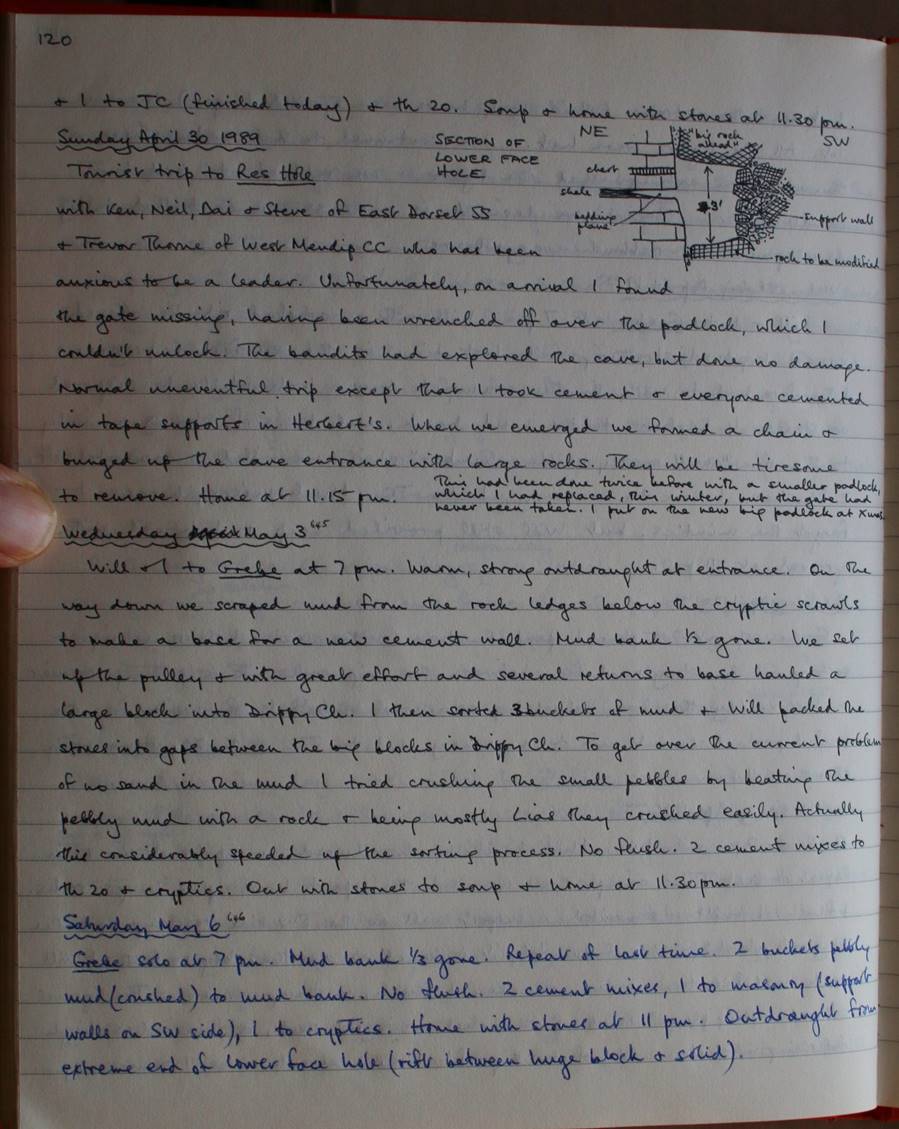 120
+ 1 to JC (finished today) + th 20. Soup + home with stones at 11.30 pm.
Sunday April 30 1989
SECTION OF
LOWER FACE
HOLE
NE
"big rock
ahead"
SW
chert
shale
bedding
plane
3'
support wall
rock to be modified
Tourist trip to Res Hole
with Ken, Neil, Dai + Steve of East Dorset SS
+ Trevor Thorne of West Mendip CC who has been
anxious to be a leader. Unfortunately, on arrival I found
the gate missing, having been wrenched off over the padlock, which I
couldn't unlock. The bandits had explored the cave, but done no damage.
Normal uneventful trip except that I took cement + everyone cemented
in tape supports in Herbert's. When we emerged we formed a chain +
bunged up the cave entrance with large rocks. They will be tiresome
to remove. Home at 11.15 pm.
This had been done twice before with a smaller padlock,
which I had replaced, this winter, but the gate had
never been taken. I put on the new big padlock at Xmas.
Wednesday May 3 645
Will + I to Grebe at 7 pm. Warm, strong outdraught at entrance. On the
way down we scraped mud from the rock ledges below the cryptic scrawls
to make a base for a new cement wall. Mud bank 1/2 gone. We set
up the pulley + with great effort and several returns to base hauled a
large block into Drippy Ch. I then sorted 3 buckets of mud + Will packed the
stones into gaps between the big blocks in Drippy Ch. To get over the current problem
of no sand in the mud I tried crushing the small pebbles by beating the
pebbly mud with a rock + being mostly Lias they crushed easily. Actually
this considerably speeded up the sorting process. No flush. 2 cement mixes to
th 20 + cryptics. Out with stones to soup + home at 11.30 pm.
Saturday May 6 646
Grebe solo at 7 pm. Mud bank 1/3 gone. Repeat of last time. 2 buckets pebbly
mud (crushed) to mud bank. No flush. 2 cement mixes, 1 to masonry (support
walls on SW side), 1 to cryptics. Home with stones at 11 pm. Outdraught from
extreme end of lower face hole (rift between huge block + solid).